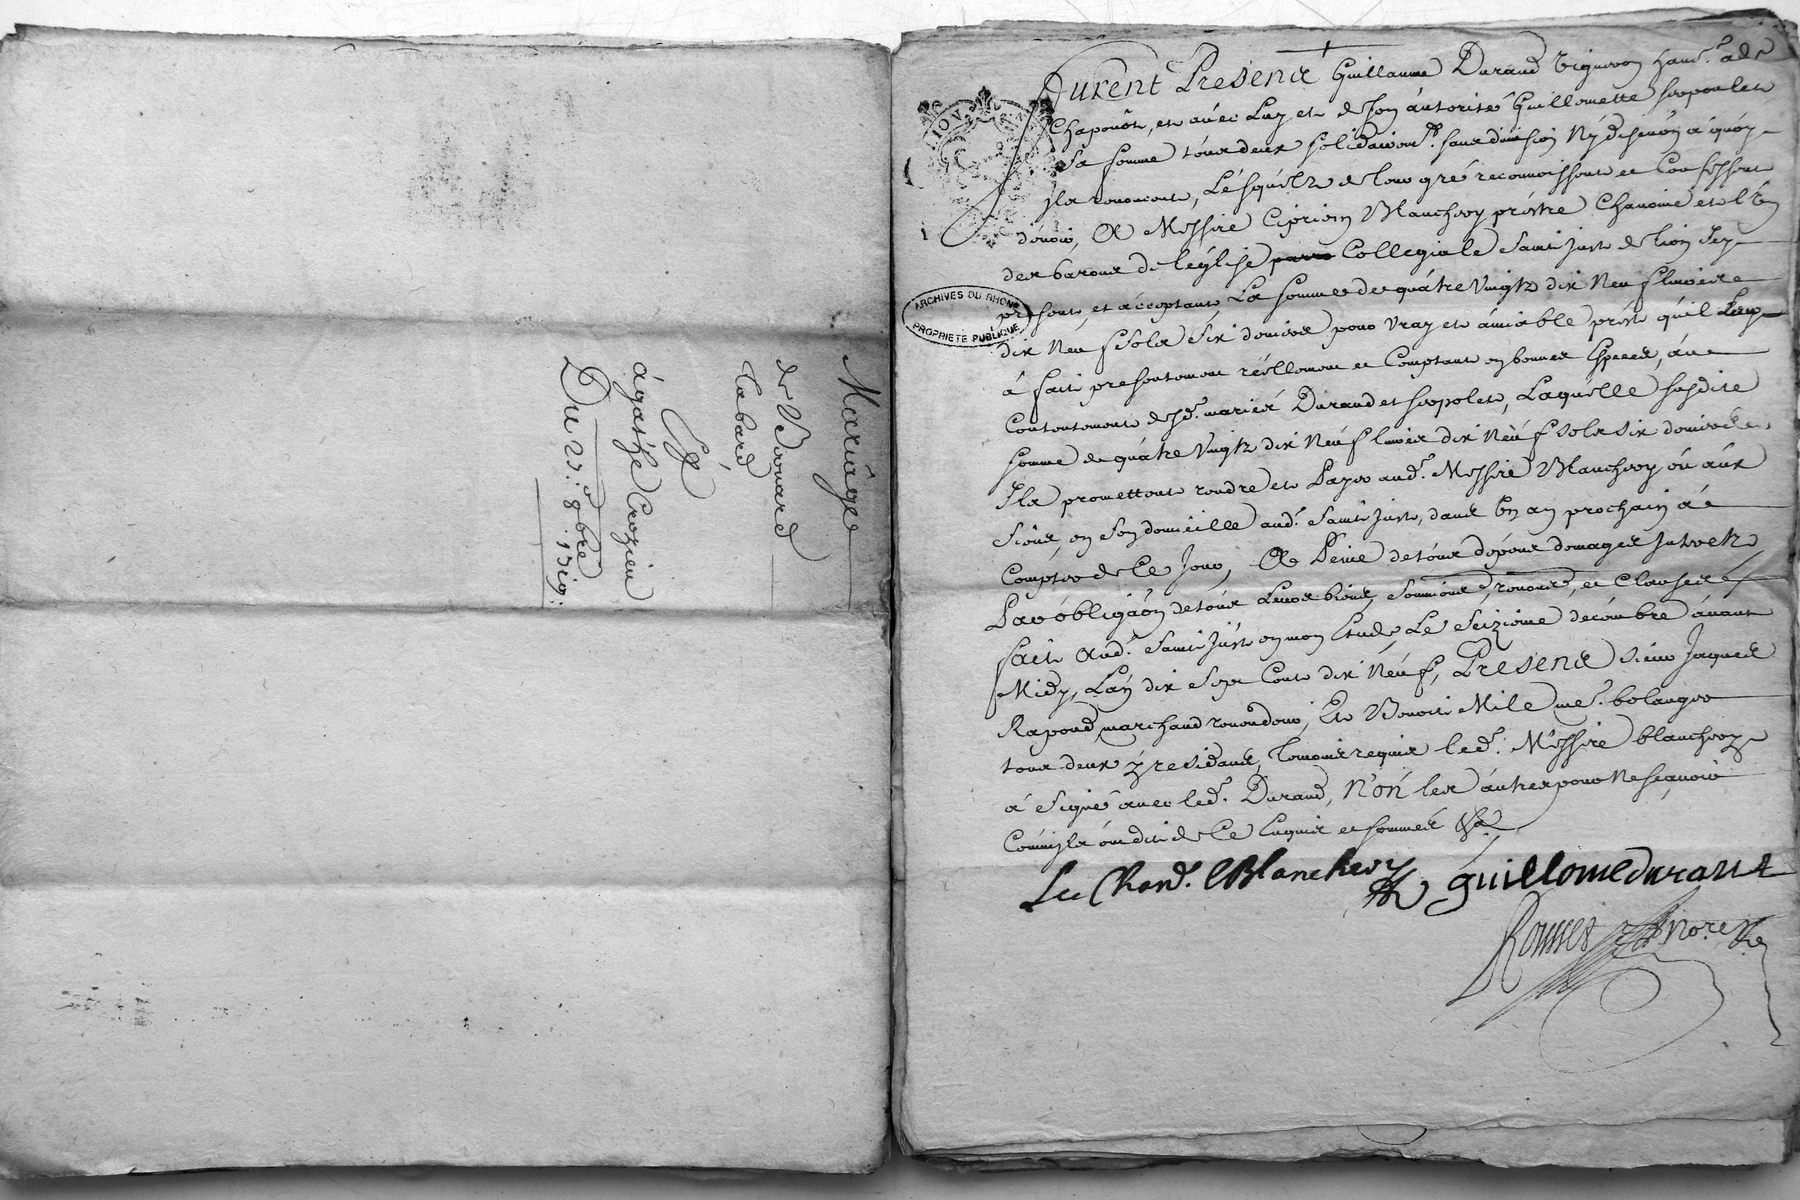 Mariâge
de Benoard
tabard
Et
ágathe Crozieu
Du 23: 8bre 1719:
ARCHIVES DU RHONE
PROPRIETE PUBLIQUE
furent Presens Guillaume Durand vigneron hant. a de
Chaponôt, et avec Luy et de son autorité Guillemette
Sa femme tous deux solidairemt. sans division Ny discution a quoy
Ils renoncent, Lésquels de leur gré reconnoissent et Confessent
dévoir, A Messire Ciprien Blanchery préstre Chanoine et l'un
des barons de l'église Collegiale Saint Just de lion Icy
présent, et acceptant, La somme de quatre Vingts dix Neuf livres
dix Neuf sols Six deniers pour vray et amiable prést qu'il Leur
á fait presentement réellement et Comptant en bonnes Especes, au
Contentement desd. mariés Durand et, Laquélle susdite
somme de quatre Vingts dix Neuf livres dix Neuf sols six deniers
Ils promettent rendre et Payer aud. Messire Blanchery ou aux
siens, en son domicille aud. Saint Just, dans un an prochain á
Compter de Ce Jour, A Peine de tous dépens domages Interets
Par obligaôn de tous Leurs biens, soumions, renons, et Clauses
fait Aud. Saint Just en mon Etude, Le Seizieme decembre avant
Midy, L'an dix sept Cents dix Neuf, Presens sieur Jaques
Rapoud marchand, Et Benoit Mile me. bolanger
tous deux y residants, temoins requis led. Messire blanchery
á signé avec led. Durand, Non les autres pour Ne sçavoir
Comm'ils ont dit de Ce Enquis et sommés
Le Chane. Blanchery guillome durant
nore. Ro.